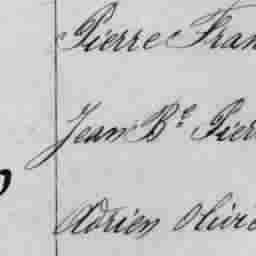 Pierre Fran
Jean Bte Pier
Adrien Olivie